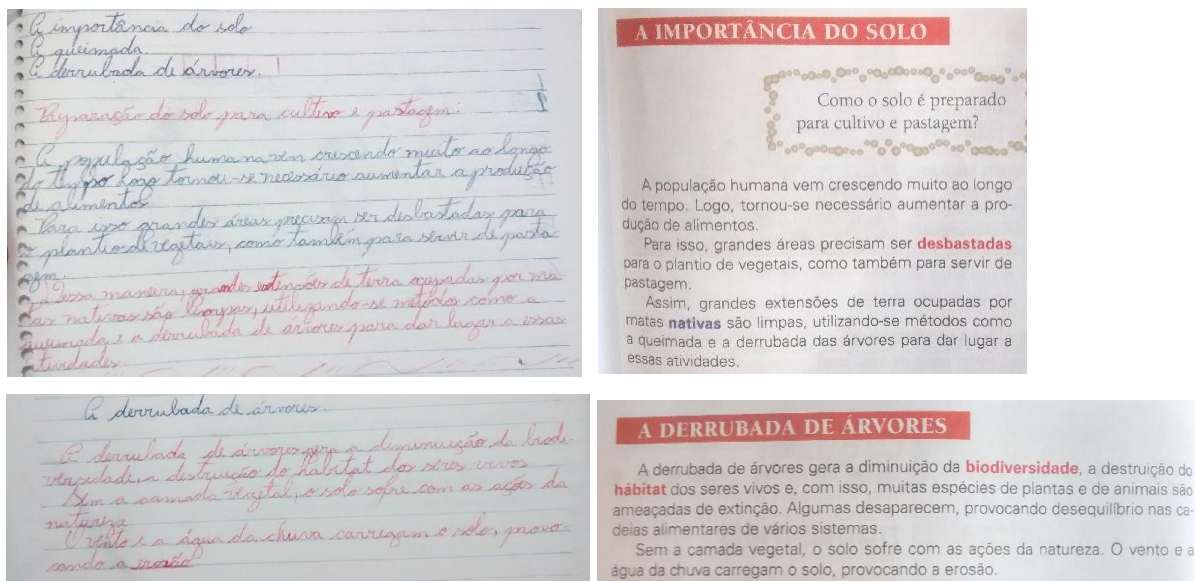 A importância do solo
A queimada
A derrubada de árvores.
Reparação do solo para cultivo e pastagem:
A população humana vem crescendo muito ao longo
do tempo Logo tornou-se necessário aumentar a produção
de alimentos
Para isso grandes áreas precisam ser desbastadas para
o plantio de vegetais, como também para servir de pasta
gem.
Dessa maneira, grandes extensões de terra ocupadas por ma
tas nativas são limpas, utilizando-se métodos como a
queimada e a derrubada de árvores para dar lugar a essas
atividades
A IMPORTÂNCIA DO SOLO
Como o solo é preparado
para cultivo e pastagem?
A população humana vem crescendo muito ao longo
do tempo. Logo, tornou-se necessário aumentar a pro-
dução de alimentos.
Para isso, grandes áreas precisam ser desbastadas
para o plantio de vegetais, como também para servir de
pastagem.
Assim, grandes extensões de terra ocupadas por
matas nativas são limpas, utilizando-se métodos como
a queimada e a derrubada das árvores para dar lugar a
essas atividades.
A derrubada de árvores.
A derrubada de árvores gera a diminuição da biodi-
versidade, a destruição do habitat dos seres vivos
Sem a camada vegetal, o solo sofre com as ações da
natureza
O vento e a água da chuva carregam o solo, provo-
cando a erosão
A DERRUBADA DE ÁRVORES
A derrubada de árvores gera a diminuição da biodiversidade, a destruição do
hábitat dos seres vivos e, com isso, muitas espécies de plantas e de animais são
ameaçadas de extinção. Algumas desaparecem, provocando desequilíbrio nas ca-
deias alimentares de vários sistemas.
Sem a camada vegetal, o solo sofre com as ações da natureza. O vento e a
água da chuva carregam o solo, provocando a erosão.